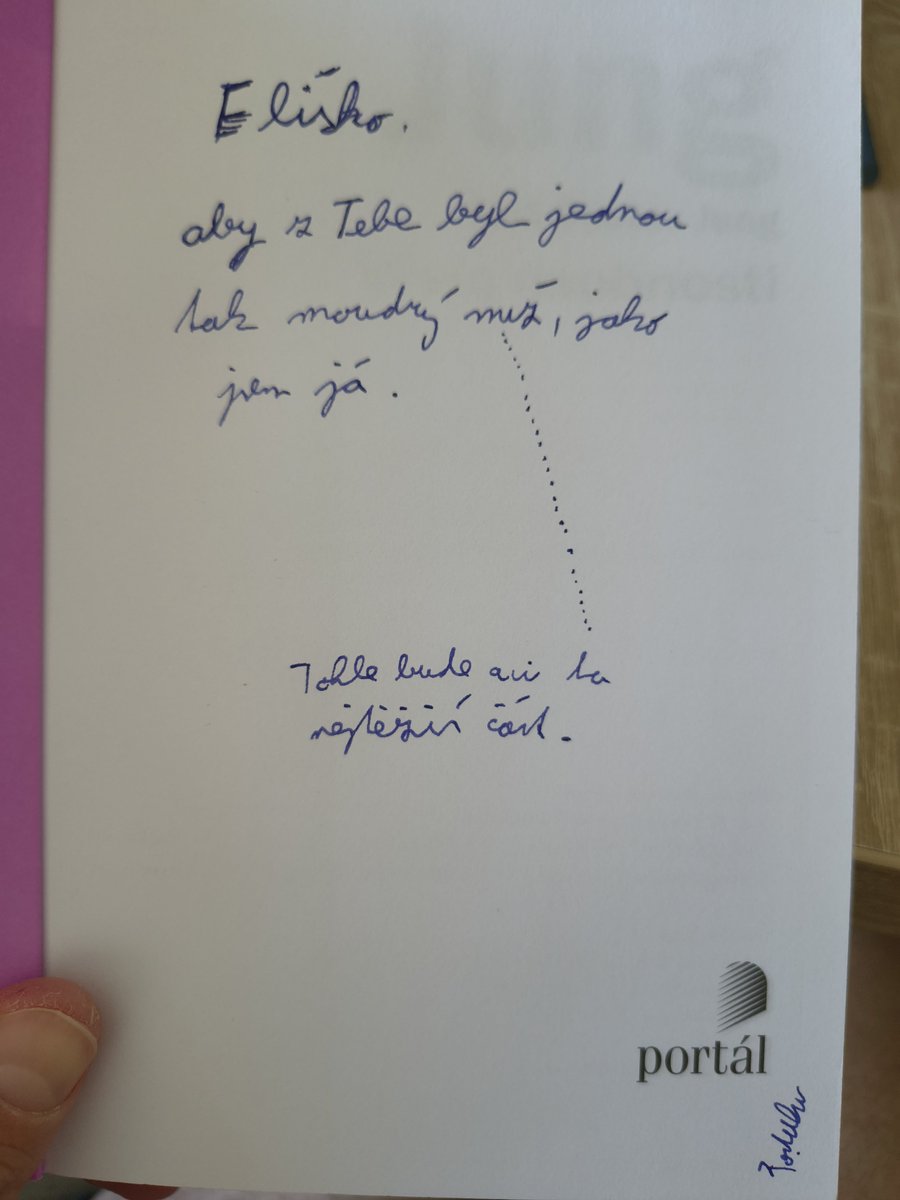 Eliško.
aby z Tebe byl jednou
tak moudrý muž, jako
jsem já.
Tohle bude asi ta
nejtěžší část.
portál